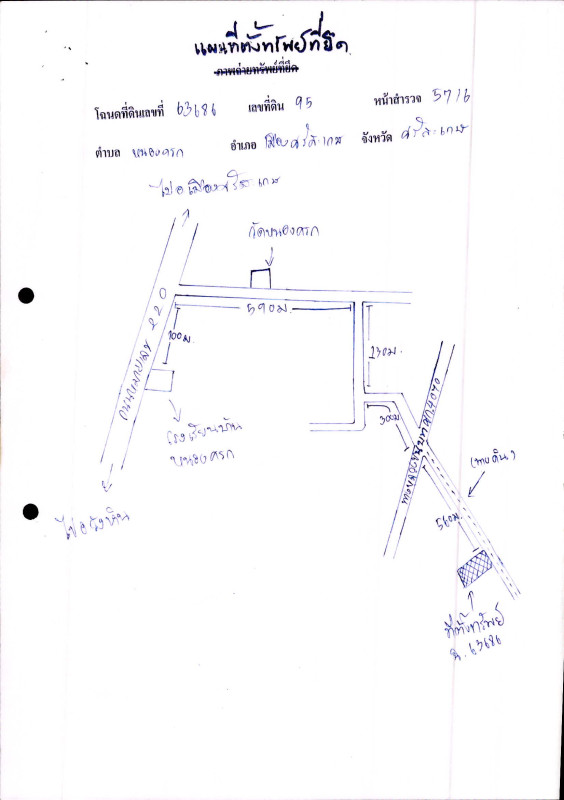 แผนที่ตั้งทรัพย์ที่ยึด
ภาพถ่ายทรัพย์ที่ยึด
โฉนดที่ดินเลขที่ 63686 เลขที่ดิน 95 หน้าสำรวจ 5716
ตำบล หนองครก อำเภอ เมืองศรีสะเกษ จังหวัด ศรีสะเกษ
ไป อ.เมืองศรีสะเกษ
วัดหนองครก
590ม.
ถนนหมายเลข 220
100ม.
230ม.
โรงเรียนบ้าน
หนองครก
300ม.
(ทางดิน)
560ม.
ไป อ.วังหิน
ที่ตั้งทรัพย์
ฉ. 63686